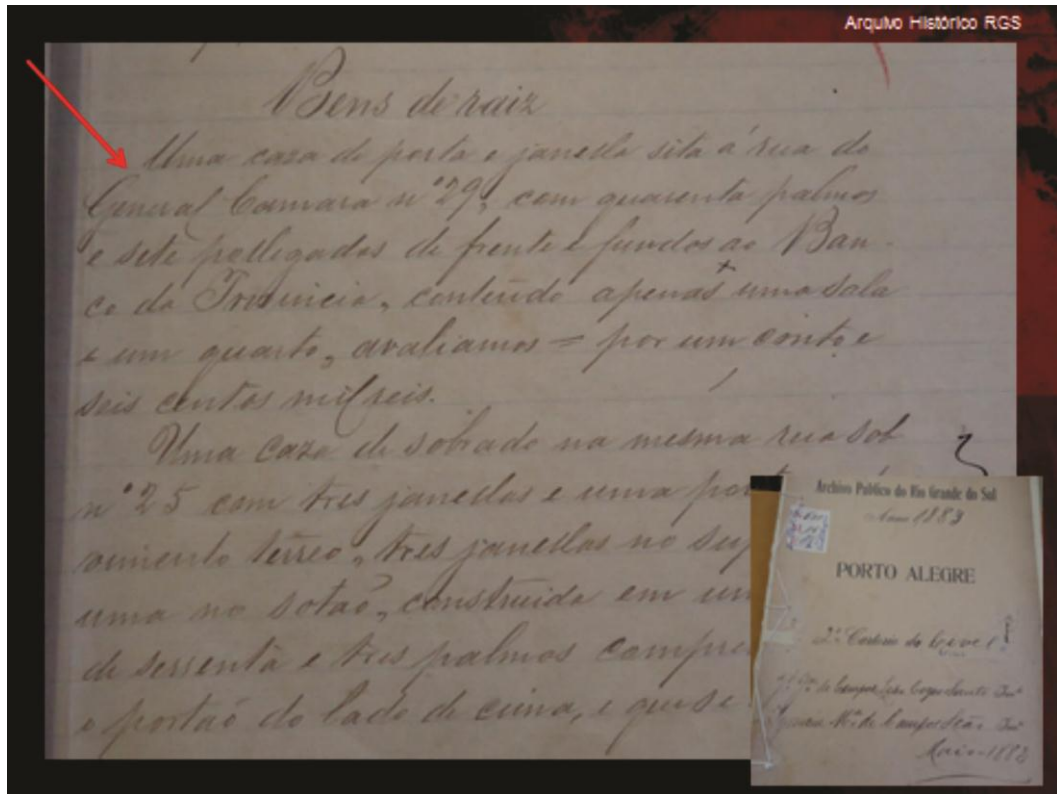 Arquivo Histórico RGS
Bens de raiz
Uma caza de porta e janella sita á rua do
General Camara nº 29, com quarenta palmos
e sete pollegadas de frente e fundos ao Ban-
co da Provincia, contendo apenas uma sala
e um quarto, avaliamos = por um conto e
seis centos mil reis.
Uma caza de sobrado na mesma rua sob
nº 25 com tres janellas e uma
vimento terreo, tres janellas no
uma no sotaõ, construida em
de sessenta e tres palmos
o portaõ do lado de cima, e que se
Archivo Publico do Rio Grande do Sul
Anno 1883
PORTO ALEGRE
2º Cartorio do Civel
de Campos Leão
Maio 1883